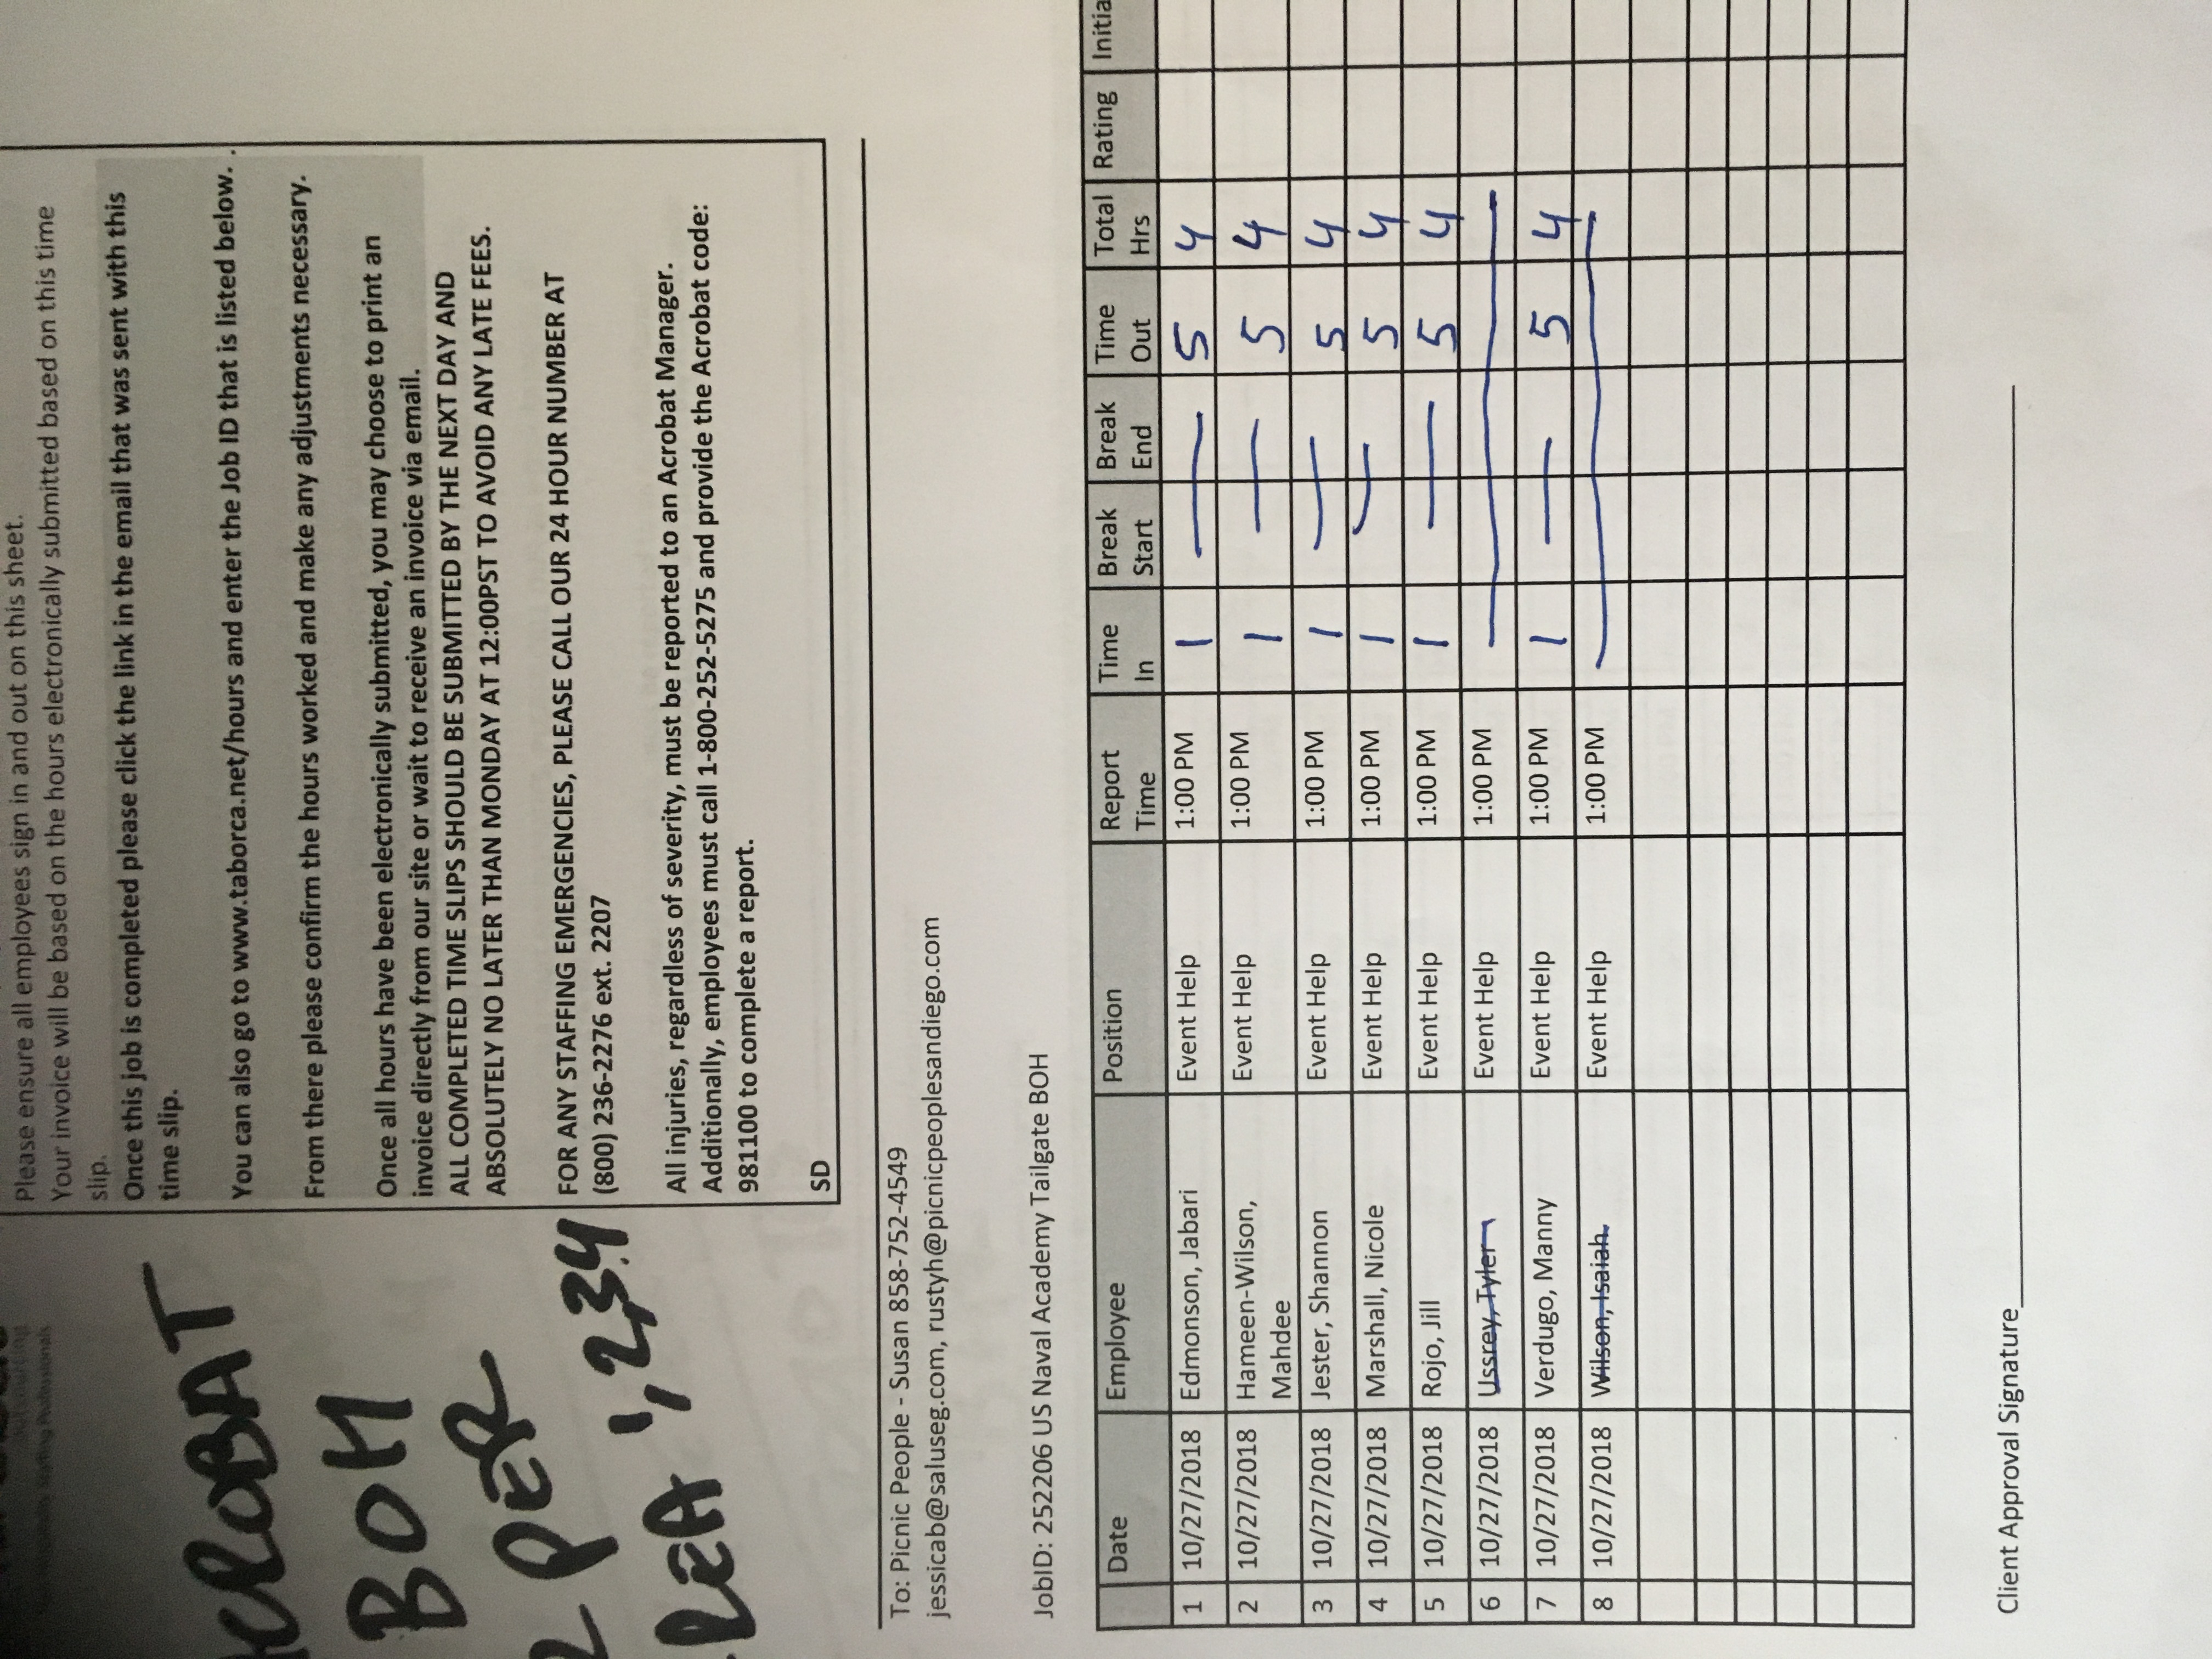 Please ensure all employees sign in and out on this sheet.
Your invoice will be based on the hours electronically submitted based on this time
slip.
Once this job is completed please click the link in the email that was sent with this
time slip.
You can also go to www.taborca.net/hours and enter the Job ID that is listed below. .
From there please confirm the hours worked and make any adjustments necessary.
Once all hours have been electronically submitted, you may choose to print an
invoice directly from our site or wait to receive an invoice via email.
ALL COMPLETED TIME SLIPS SHOULD BE SUBMITTED BY THE NEXT DAY AND
ABSOLUTELY NO LATER THAN MONDAY AT 12:00PST TO AVOID ANY LATE FEES.
FOR ANY STAFFING EMERGENCIES, PLEASE CALL OUR 24 HOUR NUMBER AT
(800) 236-2276 ext. 2207
All injuries, regardless of severity, must be reported to an Acrobat Manager.
Additionally, employees must call 1-800-252-5275 and provide the Acrobat code:
981100 to complete a report.
SD
ACROBAT
BOH
2 PER
AREA 1,2,3,4
To: Picnic People - Susan 858-752-4549
jessicab@saluseg.com, rustyh@picnicpeoplesandiego.com
JobID: 252206 US Naval Academy Tailgate BOH
Date Employee Position Report Time Time In Break Start Break End Time Out Total Hrs Rating Initia
1 10/27/2018 Edmonson, Jabari Event Help 1:00 PM 1 — 5 4
2 10/27/2018 Hameen-Wilson, Mahdee Event Help 1:00 PM 1 — 5 4
3 10/27/2018 Jester, Shannon Event Help 1:00 PM 1 — 5 4
4 10/27/2018 Marshall, Nicole Event Help 1:00 PM 1 — 5 4
5 10/27/2018 Rojo, Jill Event Help 1:00 PM 1 — 5 4
6 10/27/2018 Ussrey, Tyler Event Help 1:00 PM
7 10/27/2018 Verdugo, Manny Event Help 1:00 PM 1 — 5 4
8 10/27/2018 Wilson, Isaiah Event Help 1:00 PM
Client Approval Signature